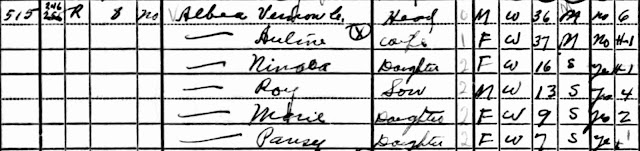 515 R 8 no Albea Vernon Head 0 M W 36 M no 6
— Auline X wife 1 F W 37 M no H-1
— Daughter 2 F W 16 S yes H-1
— Roy Son 2 M W 13 S yes 4
— Marie Daughter 2 F W 9 S yes 2
— Pansy Daughter 2 F W 7 S yes 1